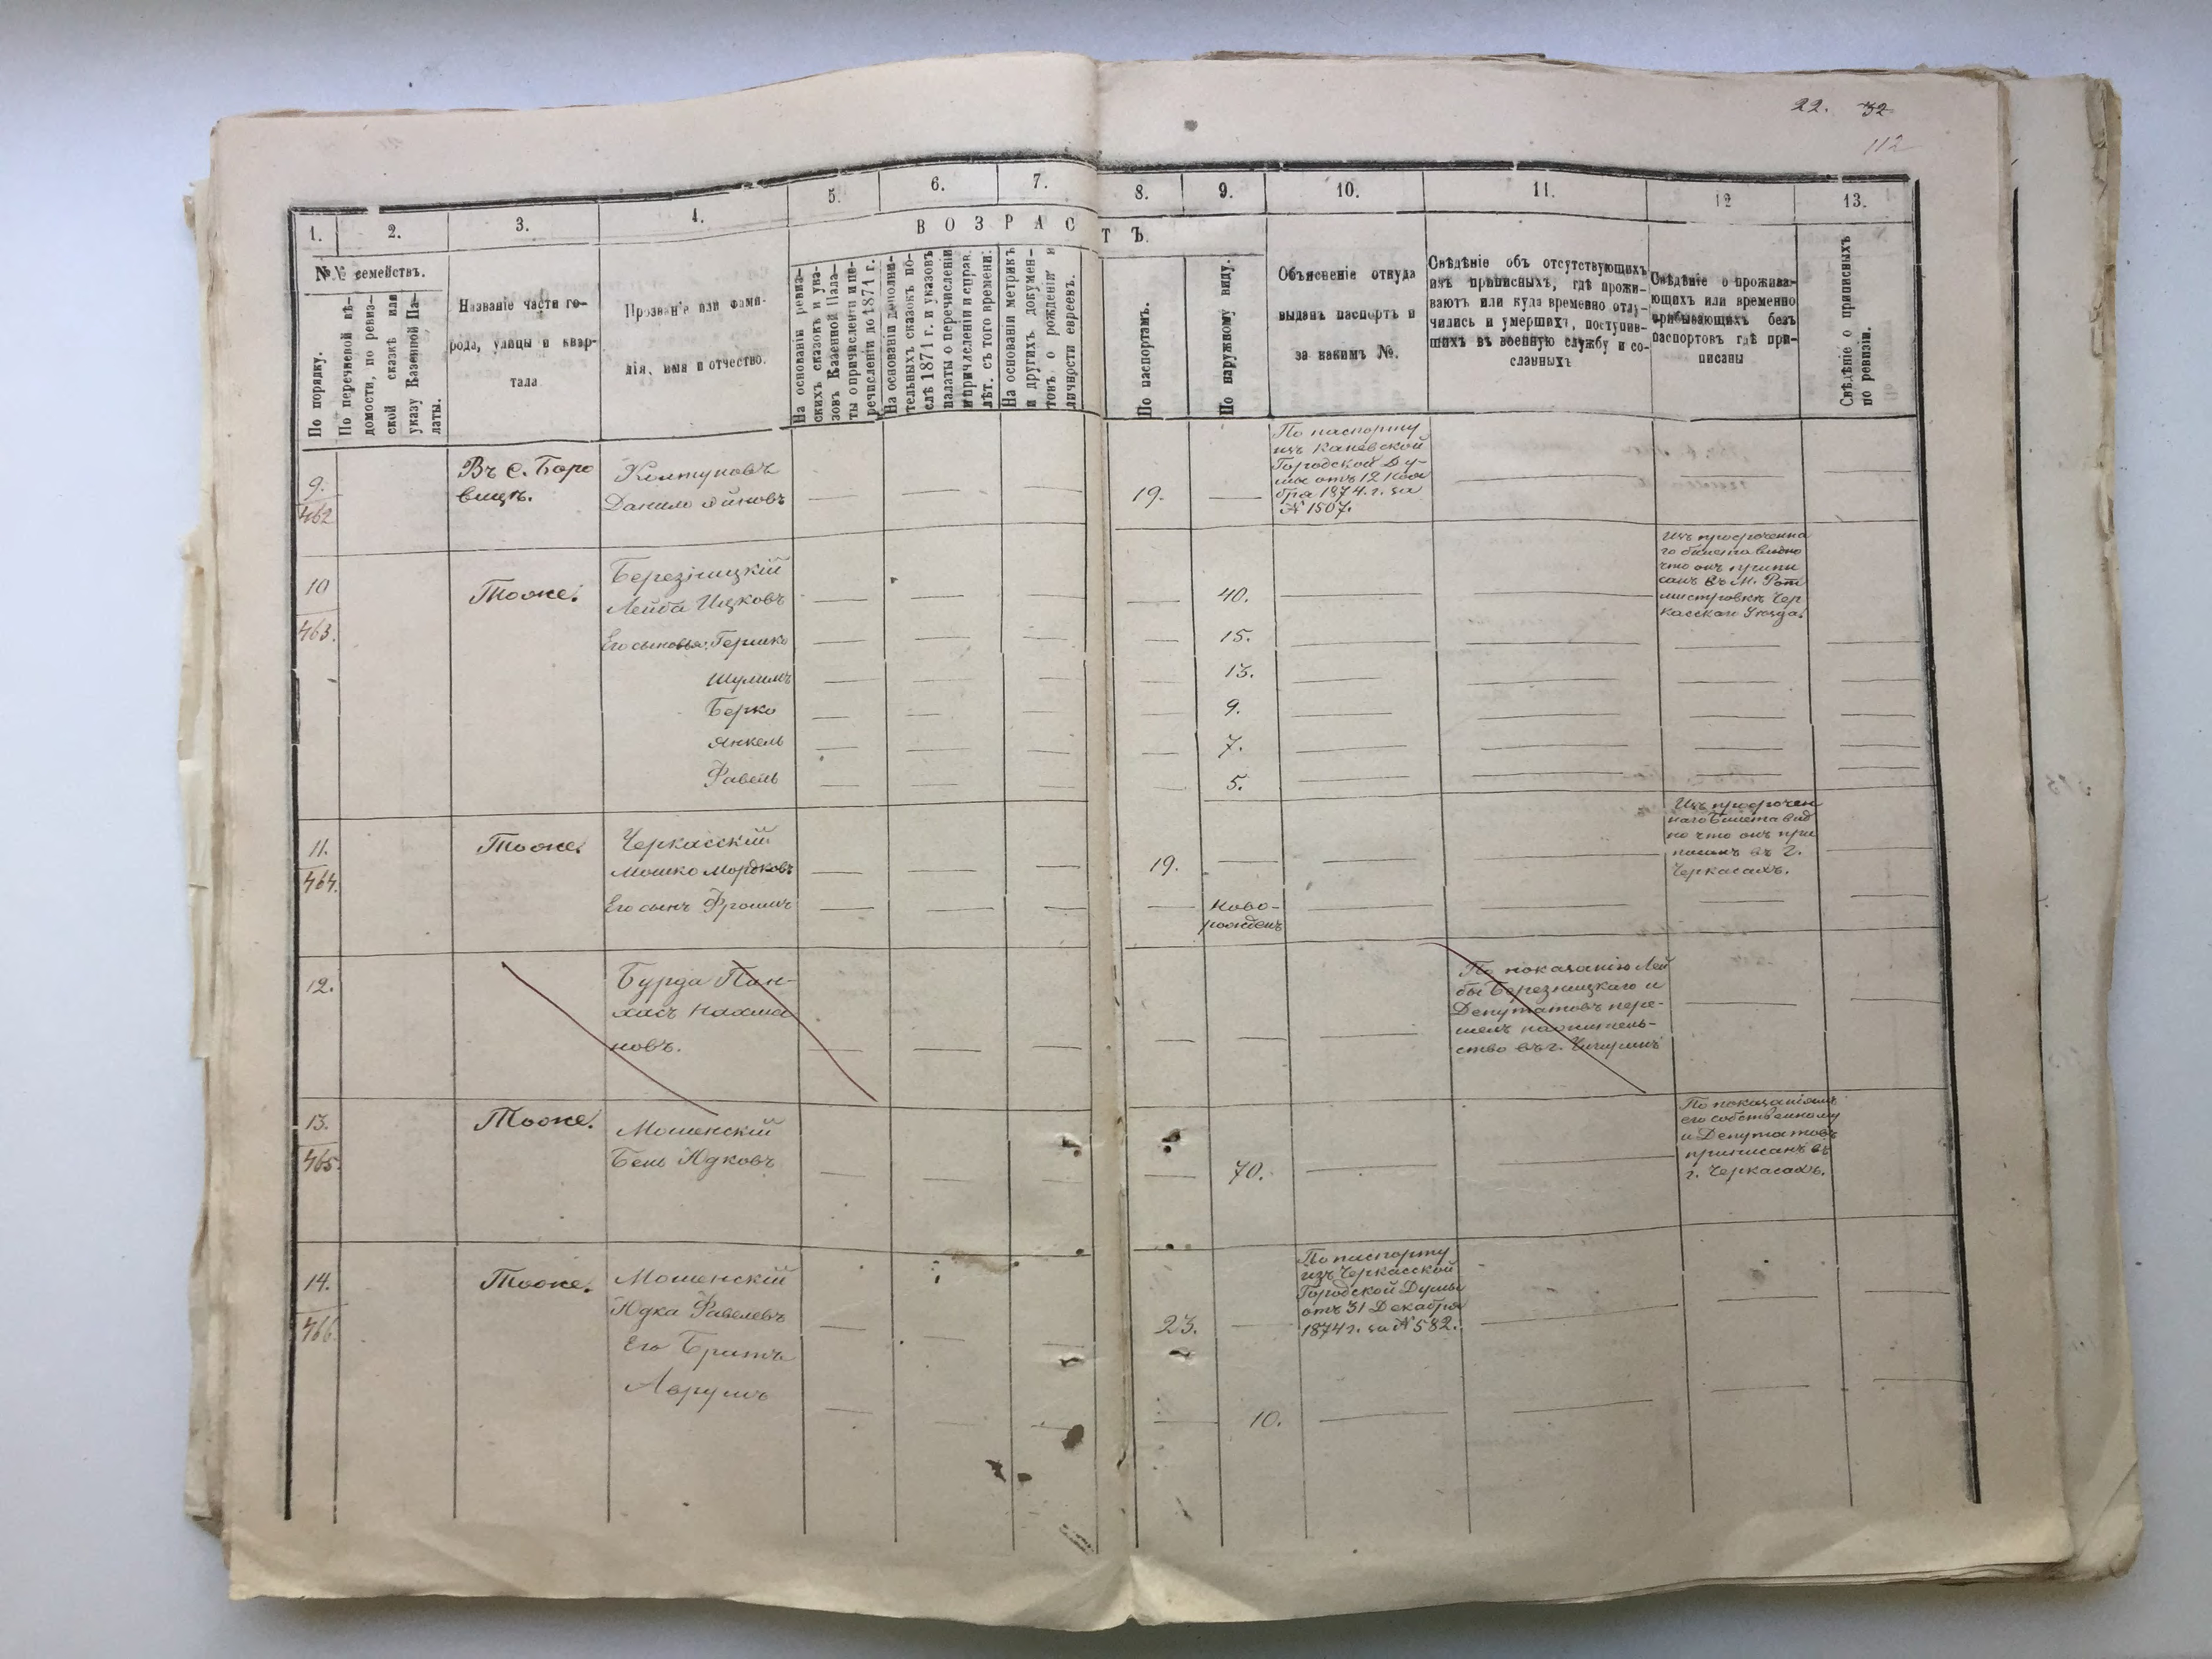 22. 32
112
1.
2.
3.
4.
5.
6.
7.
8.
9.
10.
11.
12
13.
ВОЗРАСТЪ
№№ семействъ.
По порядку.
По перечневой вѣ-
домости, по ревиз-
ской сказкѣ или
указу Казенной Па-
латы.
Названіе части го-
рода, улицы и квар-
тала
Прозваніе или фами-
лія, имя и отчество.
На основаніи ревиз-
скихъ сказокъ и ука-
зовъ Казенной Пала-
ты о причисленіи и пе-
речисленіи до 1871 г.
На основаніи дополни-
тельныхъ сказокъ по-
слѣ 1871 г. и указовъ
палаты о перечисленіи
и причисленіи и справ.
лѣт. съ того времени.
На основаніи метрикъ
и другихъ докумен-
товъ о рожденіи и
личности евреевъ.
По паспортамъ.
По наружному виду.
Объясненіе откуда
выданъ паспортъ и
за какимъ №.
Свѣдѣніе объ отсутствующихъ
изъ приписныхъ, гдѣ прожи-
ваютъ или куда временно отлу-
чились и умершихъ, поступив-
шихъ въ военную службу и со-
сланныхъ
Свѣдѣніе о прожива-
ющихъ или временно
прибывающихъ безъ
паспортовъ гдѣ при-
писаны
Свѣдѣніе о приписныхъ
по ревизіи.
9.
462
Въ С. Боро
вицѣ.
Колтуновъ
Данило
19.
По паспорту
изъ Каневской
Городской Ду-
мы отъ 12 Ноя
бря 1874. г. за
№ 1507.
10
463.
Тоже.
Березницкій
Лейба Ицковъ
40.
Изъ просроченна
го билета видно
что онъ припи
санъ въ М. Рот
мистровкѣ Чер
касскаго Уѣзда.
Его сыновья: Гершко
15.
Шулимъ
13.
Берко
9.
Янкель
7.
Фавель
5.
11.
464.
Тоже.
Черкасскій
Мошко Мордковъ
19.
Изъ просрочен
наго билета вид
но что онъ при
писанъ въ г.
Черкасахъ.
Его сынъ Фроимъ
ново-
рожденъ
12.
Бурда Пин-
хасъ Нахма
новъ.
По показанію Лей
бы Березницкаго и
Депутатовъ пере-
шелъ на житель-
ство въ г. Чигиринъ
13.
465.
Тоже.
Мошенскій
Бень Юдковъ
70.
По показаніямъ
его собственному
и Депутатовъ
приписанъ въ
г. Черкасахъ.
14.
466.
Тоже.
Мошенскій
Юдка Фавелевъ
23.
По паспорту
изъ Черкасской
Городской Думы
отъ 31 Декабря
1874 г. за № 582.
Его Братъ
Аврумъ
10.